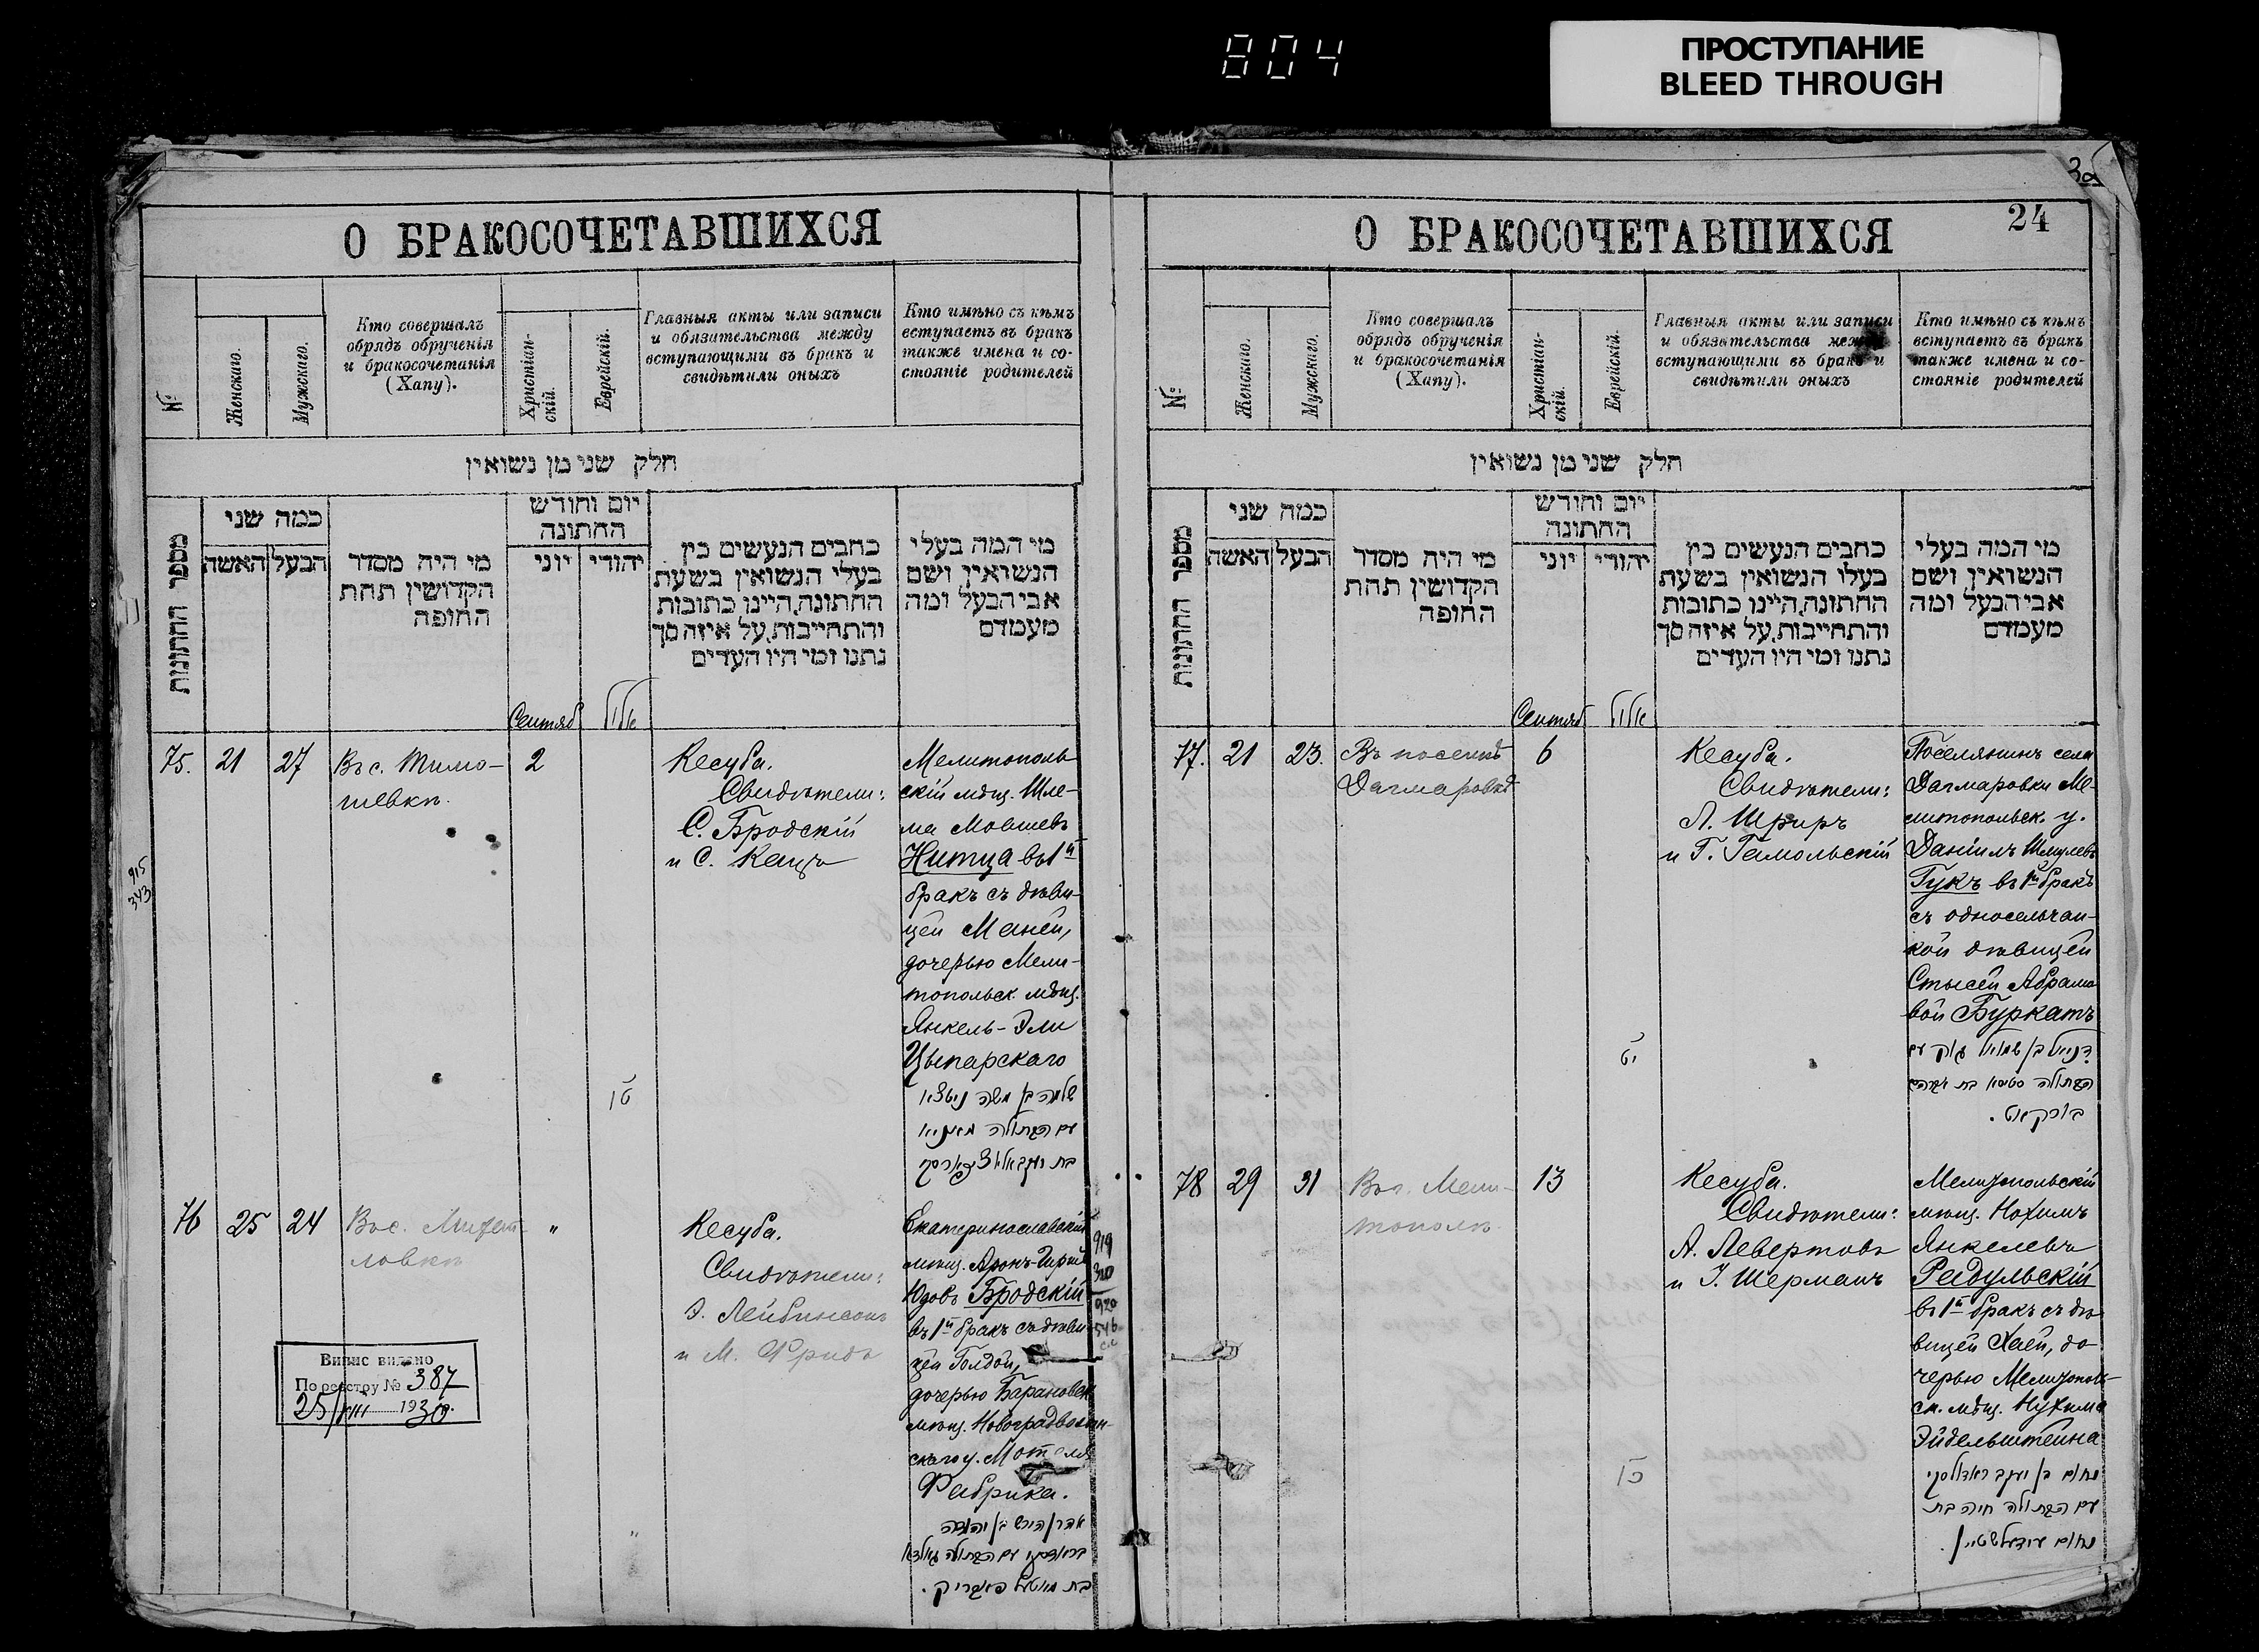 804
ПРОСТУПАНИЕ
BLEED THROUGH
О БРАКОСОЧЕТАВШИХСЯ
№
Женскаго.
Мужскаго.
Кто совершалъ
обрядъ обрученія
и бракосочетанія
(Хапу).
Христіан-
скій.
Еврейскій.
Главныя акты или записи
и обязательства между
вступающими въ бракъ и
свидѣтили оныхъ
Кто имѣно съ кѣмъ
вступаетъ въ бракъ
также имена и со-
стояніе родителей
חלק שני מן נשואין
מספר החתונות
כמה שני
האשה
הבעל
מי היה מסדר
הקדושין תחת
החופה
יום וחודש
החתונה
יוני
יהודי
כתבים הנעשים בין
בעלי הנשואין בשעת
החתונה, היינו כתובות
והתחייבות, על איזה סך
נתנו ומי היו העדים
מי המה בעלי
הנשואין ושם
אבי הבעל ומה
מעמדם
Сентяб
אלול
75.
21
27
Въ с. Тимо-
шевкѣ.
2
טו
Кесуба.
Свидѣтели:
С. Бродскій
и С. Кацъ
Мелитополь
скій мѣщ. Шле-
ма Мовшевъ
Нитца въ 1й
бракъ съ дѣви-
цей Маней,
дочерью Мели-
топольск. мѣщ.
Янкель-Эли
Цыпарскаго
שלמה בן משה ניטצא
עם הבתולה מאניא
915
343
76
25
24
Въ с.
ловкѣ
"
"
Кесуба.
Свидѣтели:
Э. Лейбинсонъ
и М. Фридъ
Екатеринославскій
мѣщ. Аронъ-Гиршъ
Юдовъ Бродскій
въ 1й бракъ съ дѣви-
цей Голдой,
дочерью Барановск
мѣщ. Новоградволын-
скаго у. Мотеля
Фабрика.
אהרן הירש בן יהודה
בראדסקי עם הבתולה גאלדא
בת מאטעל פאבריק.
919
340
920
546
Витис видано
По реєстру № 387
25/VIII 1930р.
О БРАКОСОЧЕТАВШИХСЯ
24
№
Женскаго.
Мужскаго.
Кто совершалъ
обрядъ обрученія
и бракосочетанія
(Хапу).
Христіан-
скій.
Еврейскій.
Главныя акты или записи
и обязательства между
вступающими въ бракъ и
свидѣтили оныхъ
Кто имѣно съ кѣмъ
вступаетъ въ бракъ
также имена и со-
стояніе родителей
חלק שני מן נשואין
מספר החתונות
כמה שני
האשה
הבעל
מי היה מסדר
הקדושין תחת
החופה
יום וחודש
החתונה
יוני
יהודי
כתבים הנעשים בין
בעלי הנשואין בשעת
החתונה, היינו כתובות
והתחייבות, על איזה סך
נתנו ומי היו העדים
מי המה בעלי
הנשואין ושם
אבי הבעל ומה
מעמדם
Сентяб
אלול
77.
21
23.
Въ поселкѣ
Дагмаровкѣ
6
יט
Кесуба.
Свидѣтели:
Л. Шриръ
и Г. Гамольскій
Поселянинъ села
Дагмаровки Ме-
литопольск. у.
Даніилъ Шмулевъ
Гукъ въ 1й бракъ
съ односельчан-
кой дѣвицей
Стысей Абрамо
вой Буркатъ
דניאל בן שמואל גוק עם
הבתולה סטיסא בת אברהם
בורקאט.
78
29
31
Въ г. Мели-
тополѣ
13
Кесуба.
Свидѣтели:
А. Левертовъ
и І. Шерманъ
Мелитопольскій
мѣщ. Нохимъ
Янкелевъ
Радульскій
въ 1й бракъ съ дѣ
вицей Хаей, до
черью Мелитополь-
ск. мѣщ. Нухима
Эйдельштейна
נחום בן יעקב ראדולסקי
עם הבתולה חיה בת
נחום עידעלשטיין.